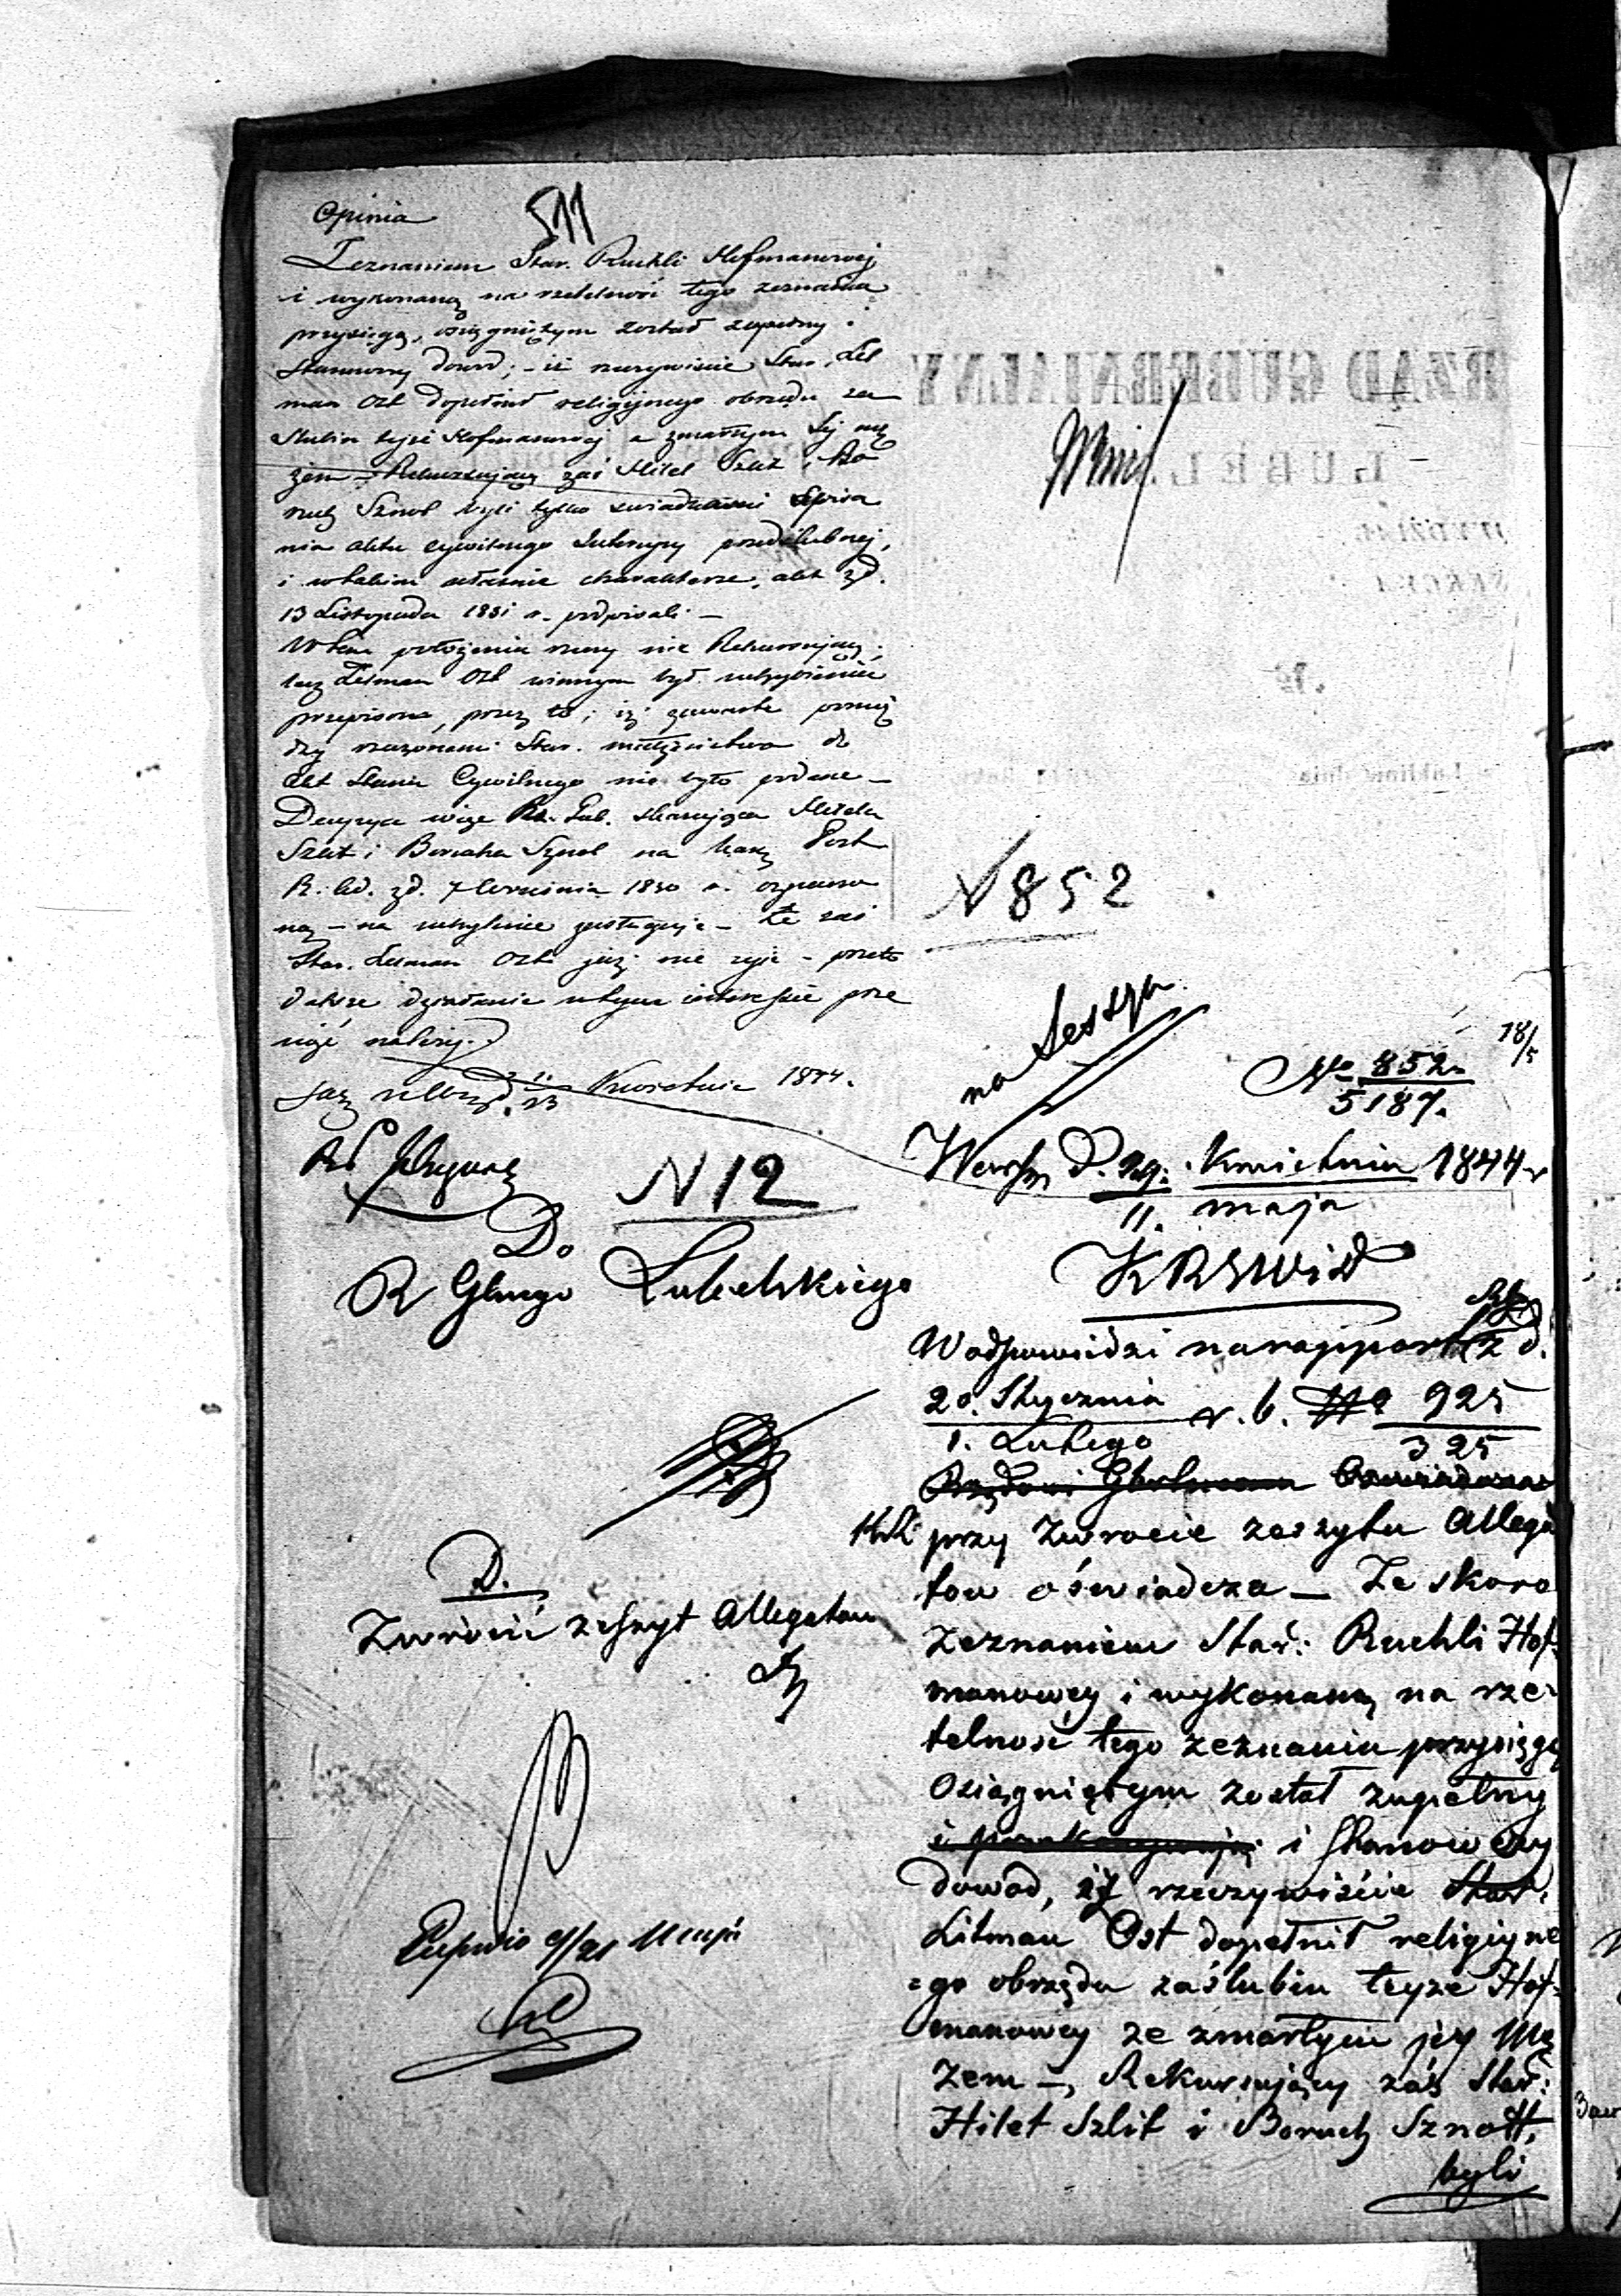 511
Opinia
Zeznaniem Star. Ruchli Hofmanowej
i wykonaną na rzetelność tego zeznania
przysięgą, osiągniętym został zupełny i
stanowczy dowód; - iż rzeczywiście Star. Lit
man Ost dopełnił religijnego obrzędu za
ślubin tejże Hofmanowej z zmarłym Jej mę
żem - Rekursujący zaś Hilel Szlit i Bo
ruch Sznol byli tylko świadkami spisa
nia aktu cywilnego Interцyzy przedślubnej,
i w takim właśnie charakterze, akt z d.
13 Listopada 1831 r. podpisali -
W tem położeniu rzeczy nie Rekursujący
lecz Litman Ost winnym był uchybienia
przepisom, przez to; iż zawarte pomię
dzy Star. małżeństwo do
Akt Stanu Cywilnego nie było podane -
Decyzya więc Rz. Gub. skazująca Hilela
Szlit i Borucha Sznol na karę Post
R. Ad. z d. 7 Września 1830 r. oznaczo
ną - na uchylenie zasługuje - że zaś
Star. Litman Ost już nie żyje - przeto
dalsze działanie w tym interessie
należy.
23 Kwietnia 1844.
N 12
Do
R Glnego Lubelskiego
D.
Zwrócić zeszyt Allegatow
9/21 Maja
RZĄD GUBERNIALNY
LUBEL
WYDZIAŁ
SEKCYA
N 852
na Sessyą
18/5
No 852
5187.
Warsz d. 29. Kwietnia 1844 r
11. maja
KRSWiD
W odpowiedzi na rapport z d.
20. Stycznia r. b. No 925
1. Lutego 325
przy zwrocie zeszytu Allega
tow oświadcza - Że skoro
zeznaniem Star: Ruchli Hof-
manowey i wykonaną na rze-
telność tego zeznania przysięgą
osiągniętym został zupełny
i stanowczy
dowod, iż rzeczywiście Star.
Litman Ost dopełnił religijne
=go obrzędu zaślubin teyże Hof-
manowey ze zmarłym jey Mę
żem -, Rekursujący zaś Star:
Hilel Szlit i Boruch Sznoll,
byli